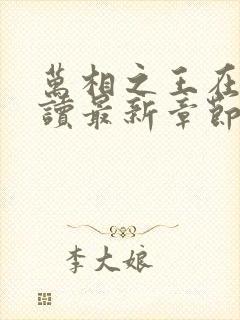 萬相之王在
讀最新章節
李大娘